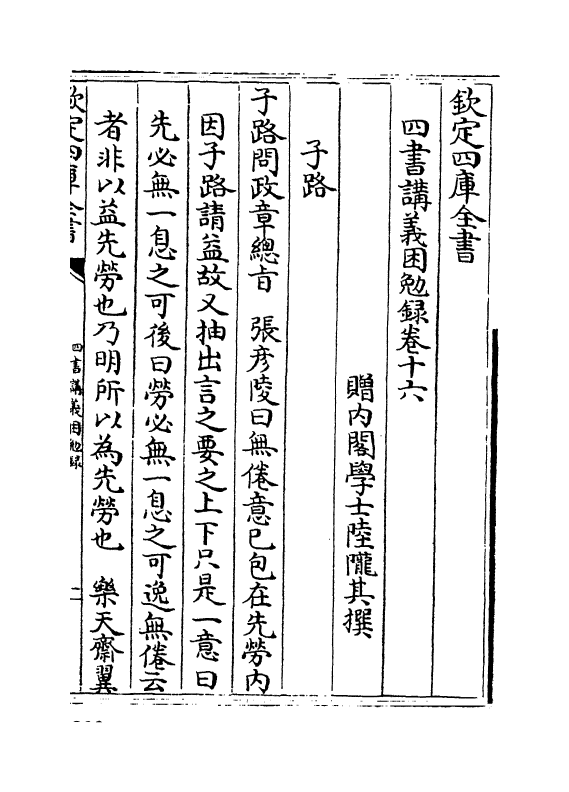 欽定四庫全書
四書講義困勉録卷十六
贈內閣學士陸隴其撰
子路
子路問政章總旨　張彦陵曰無倦意已包在先勞內
因子路請益故又抽出言之要之上下只是一意曰
先必無一息之可後曰勞必無一息之可逸無倦云
者非以益先勞也乃明所以為先勞也　樂天齋翼
欽定四庫全書
四書講義困勉録